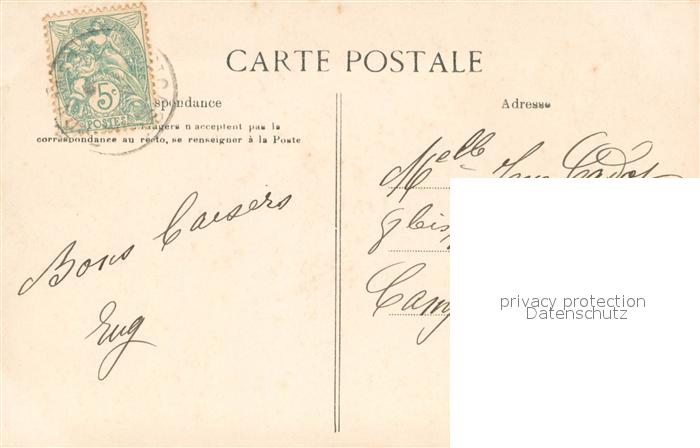 CARTE POSTALE
5c
POSTES
spondance
Adresse
angers n'acceptent pas la
correspondance au recto, se renseigner à la Poste
Melle
Bons Baisers
Eug
privacy protection
Datenschutz